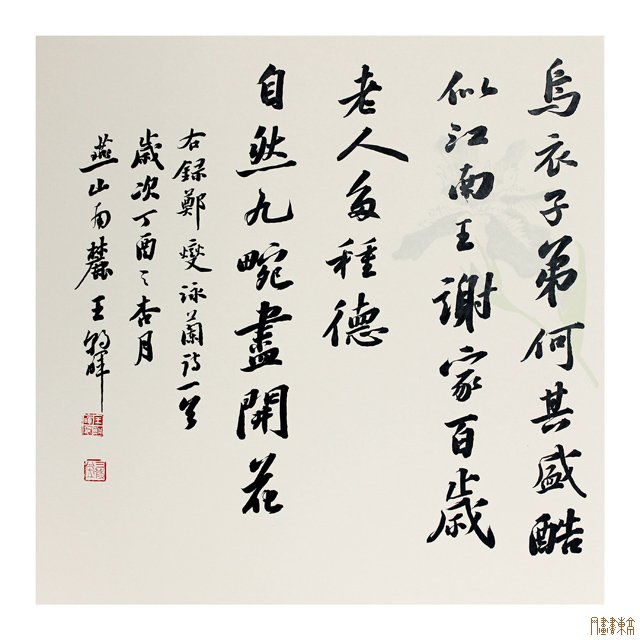 烏衣子弟何其盛酷
似江南王謝家百歲
老人多種德
自然九畹盡開花
右録鄭燮詠蘭詩一首
歲次丁酉之杏月
燕山南麓王